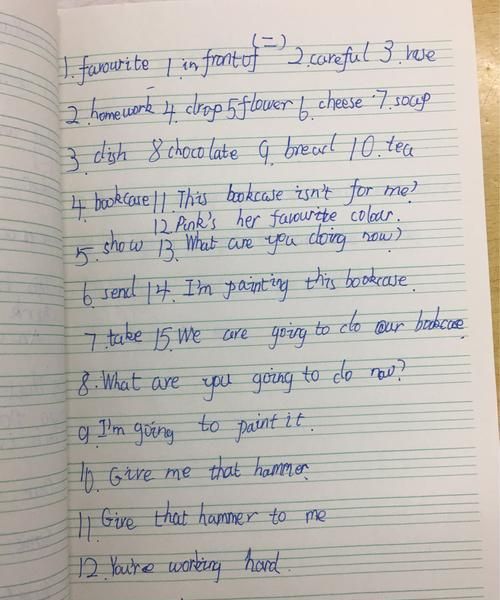 (二)
1. favourite 1 in front of 2. careful 3. vase
2. homework 4. drop 5 flower 6. cheese 7. soup
3. dish 8 chocolate 9. bread 10. tea
4. bookcase 11. This bookcase isn't for me?
12 Pink's her favourite colour.
5. show 13. What are you doing now?
6 send 14. I'm painting this bookcase.
7. take 15. We are going to do our bookcase
8. What are you going to do now?
9 I'm going to paint it.
10. Give me that hammer.
11. Give that hammer to me
12. You're working hard.